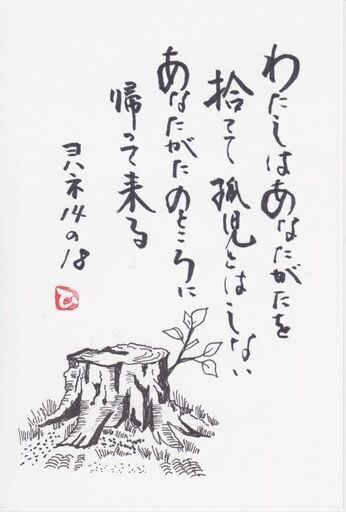 わたしはあなたがたを
捨てて孤児とはしない
あなたがたのところに
帰って来る
ヨハネ14の18
ひ